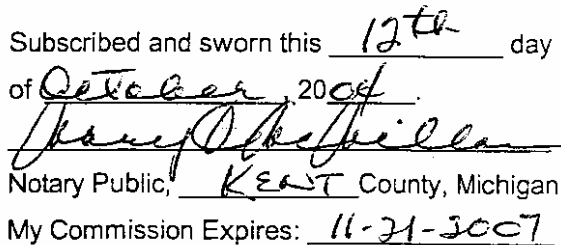 Subscribed and sworn this 12th day
of October, 2004.
Notary Public, KENT County, Michigan
My Commission Expires: 11-21-2007